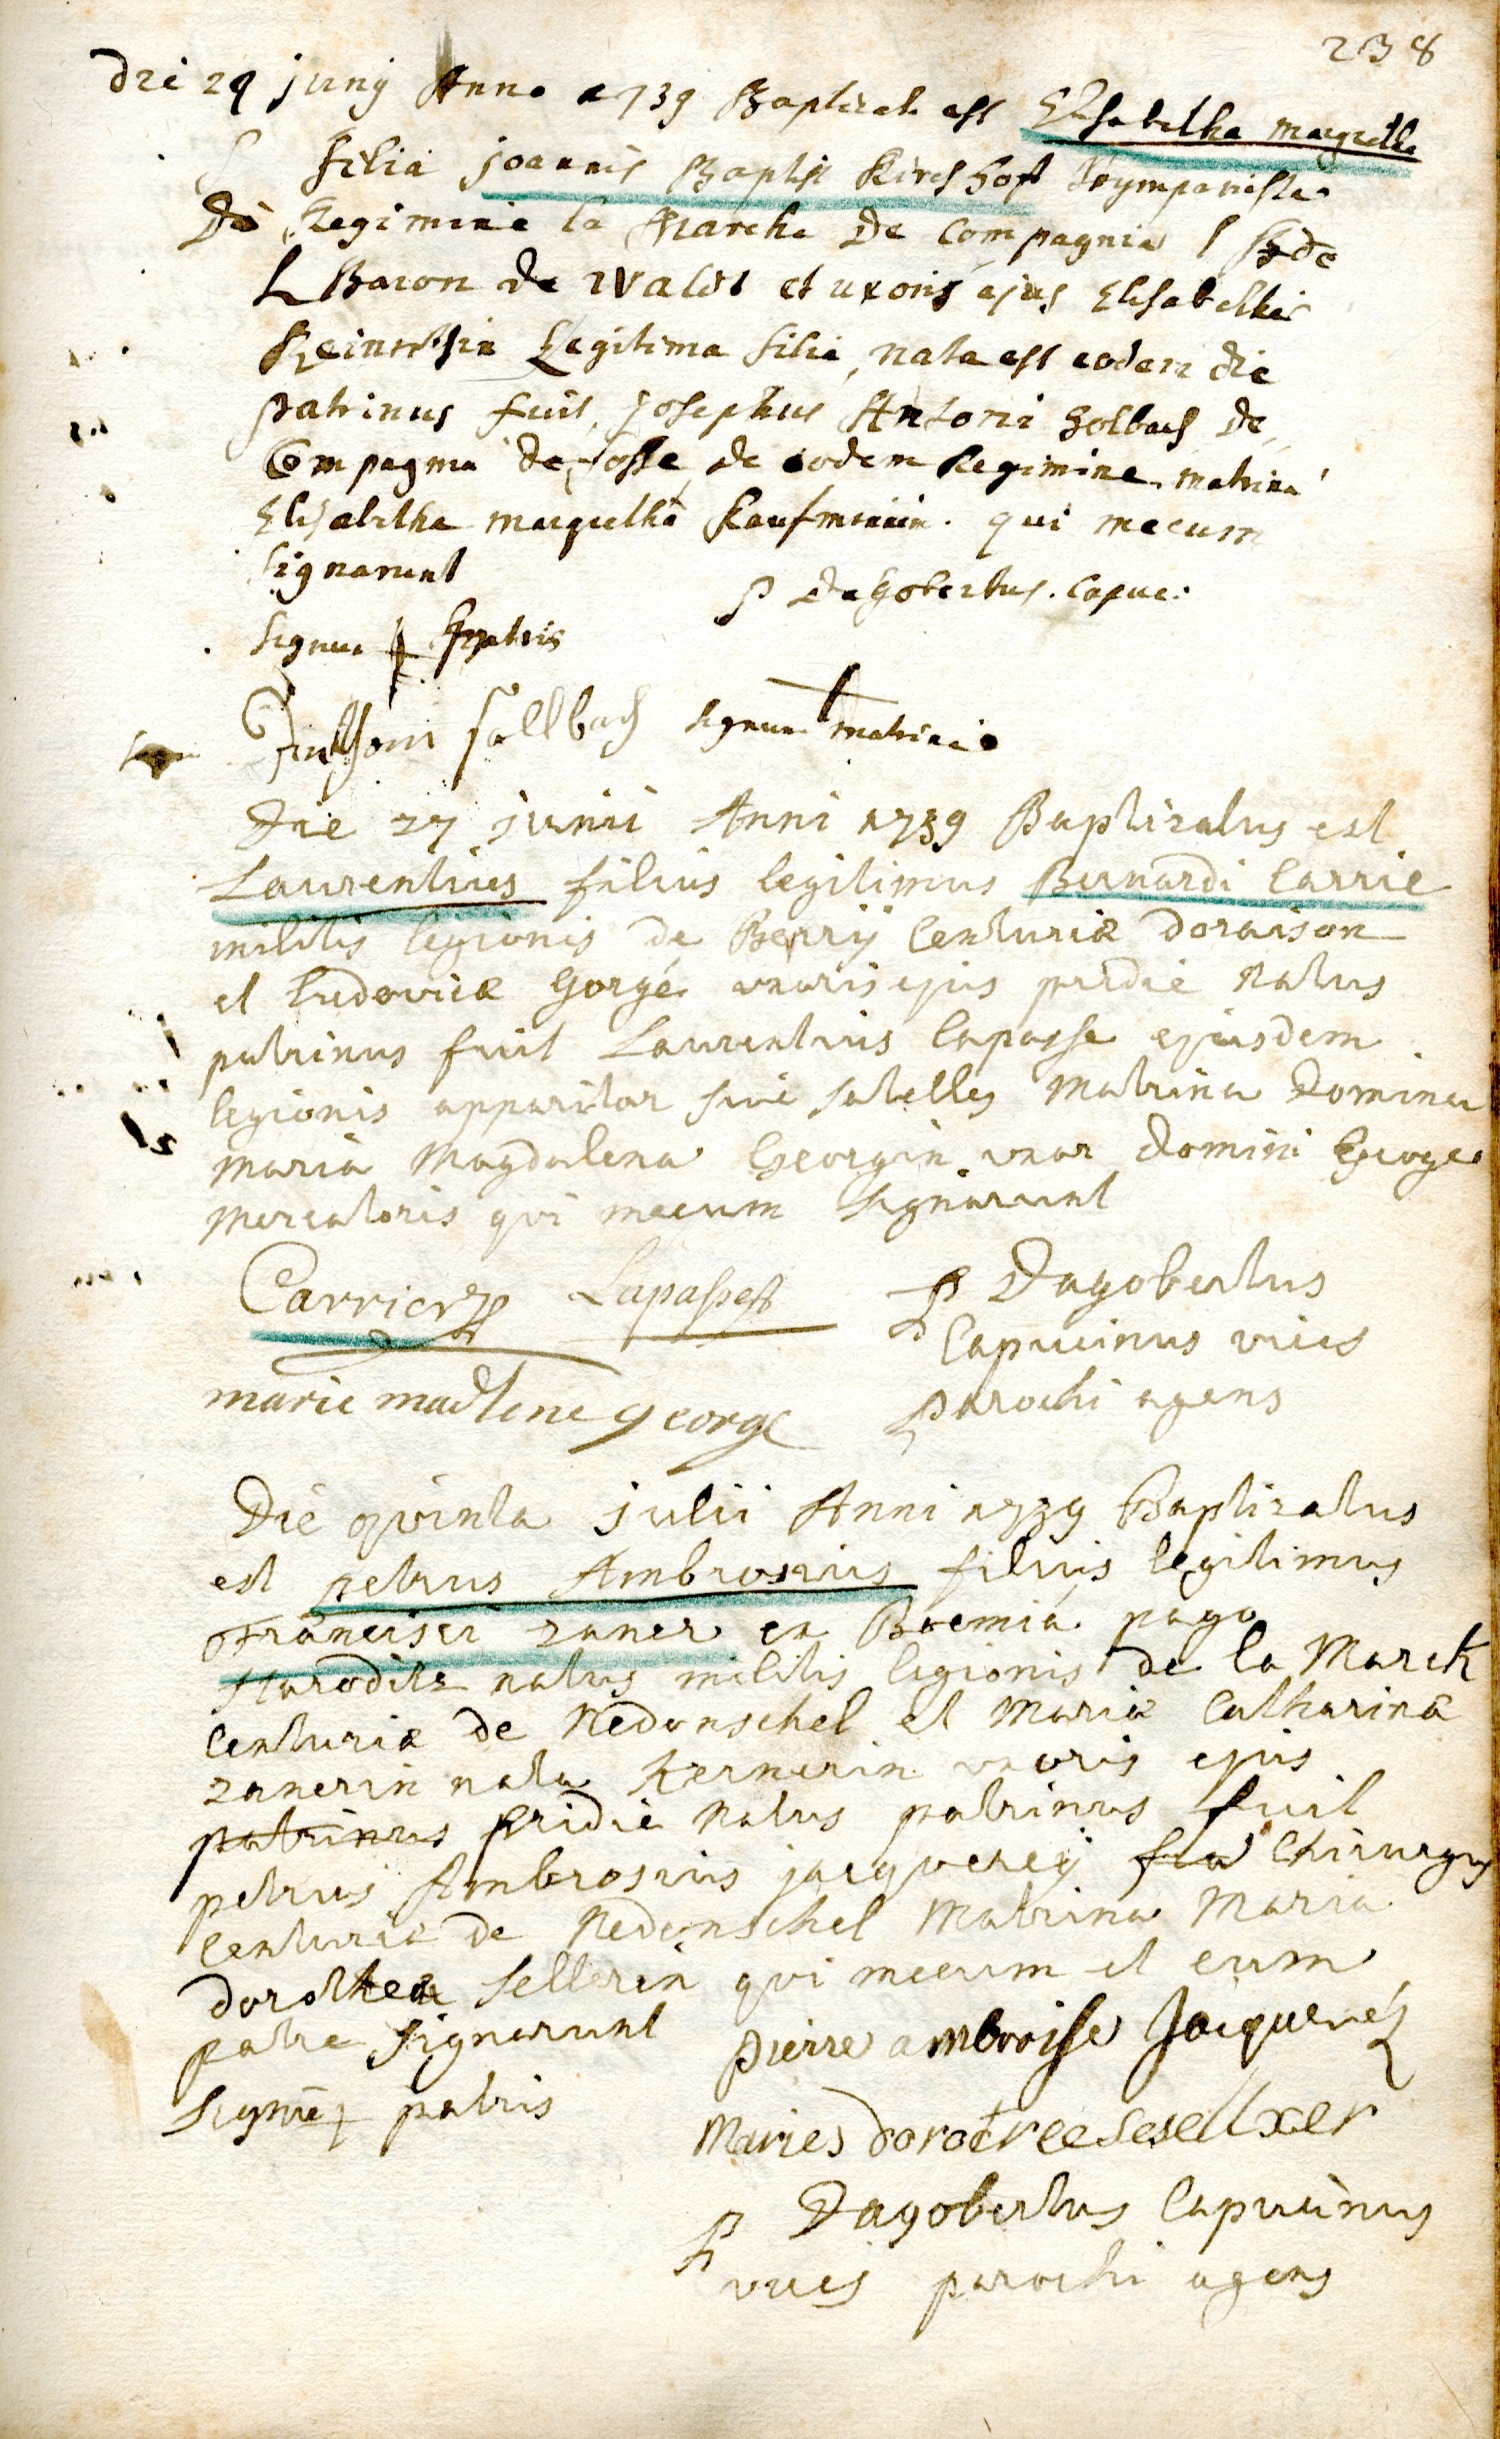 238
Die 29 junÿ Anno 1739 Baptizata est Elisabetha margretha
Filia joannis Baptist Kirchhof Tÿmpaniste
De Regimine la Marche De Compagnia
L Baron de Waldt et uxoris ejus Elisabetha
Legitima filia, nata est eodem die
patrinus fuit, josephus Antoni Holbach De
Compagnia de fosse, de eodem Regimine. matrina
Elisabetha margretha Kaufmannin. qui mecum
signarunt
P Dagobertus. Capuc.
signum + patris
Anthoni Hollbach signum + matrinae
Die 27 junii Anni 1739 Baptizatus est
Laurentius filius legitimus Bernardi Carrie
militis legionis de Berrÿ Centuriæ doraison
et Ludovicæ Gorgé uxoris ejus pridie Natus
patrinus fuit Laurentius Lapasse ejusdem
legionis apparitor sive satelles Matrina Domina
Maria Magdalena Georgin uxor Domini George
Mercatoris qui mecum signarunt
Carrier Lapasset P Dagobertus
Capucinus vices
marie madlene george parochi agens
Die quinta julii Anni 1739 Baptizatus
est petrus Ambrosius filius legitimus
Francisci zaner ex Boemia. pago
Harodits natus militis legionis de la Marck
Centuriæ de Nedonschel et Mariæ Catharinæ
zanerin nata Kernerin uxoris ejus
patrinus pridie Natus patrinus fuit
petrus Ambrosius jacquereÿ Chirurgus
Centuriæ de Nedonschel Matrina Maria
dorothea Sellerin qui mecum et cum
patre signarunt pierre ambroise Jacqueréz
signū + patris
P Dagobertus Capucinus
vices parochi agens